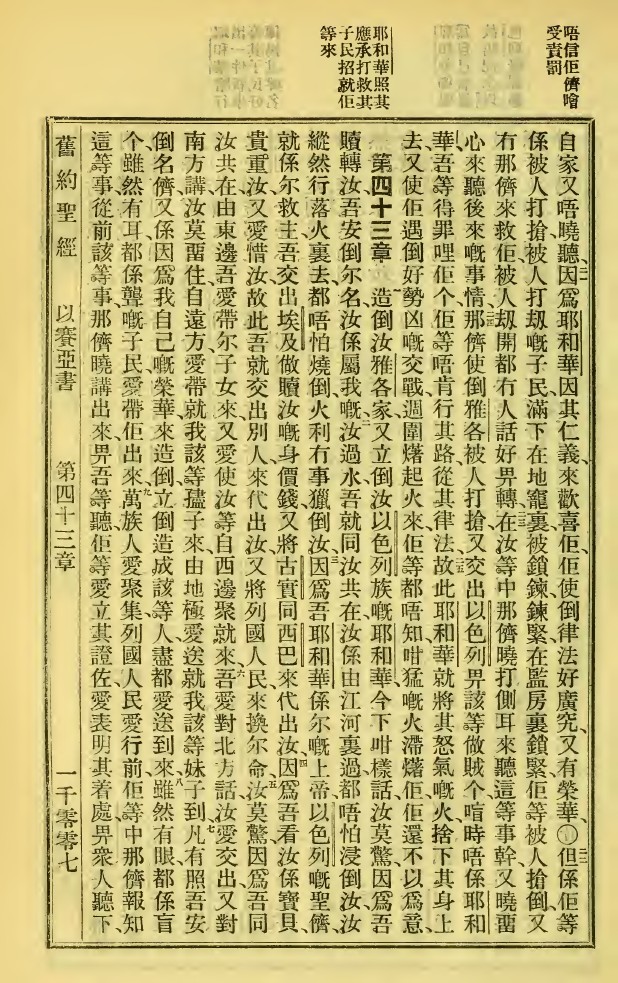 唔信佢儕噲
受責罰
耶和華照其
應承打救其
子民招就佢
等來
自家又唔曉聽、因爲耶和華因其仁義、來歡喜佢、佢使倒律法好廣究、又有榮華、〇但係佢等
係被人打搶、被人打刼嘅子民、滿下在地窿裏被鎖鍊鍊緊、在監房裏鎖緊、佢等被人搶倒、又
冇那儕來救佢、被人刼開都冇人話好畀轉、在汝等中那儕曉打側耳來聽這等事幹、又曉畱
心來聽後來嘅事情、那儕使倒雅各被人打搶、又交出以色列畀該等做賊个、喑時唔係耶和
華、吾等得罪哩佢个、佢等唔肯行其路、從其律法、故此耶和華就將其怒氣嘅火、捨下其身上
去、又使佢遇倒好勢凶嘅交戰、週圍㷮起火來、佢等都唔知、咁猛嘅火滯㷮佢、佢還不以爲意、
第四十三章　造倒汝雅各家、又立倒汝以色列族嘅耶和華、今下咁樣話、汝莫驚、因爲吾
贖轉汝、吾安倒尔名、汝係屬我嘅、汝過水吾就同汝共在、汝係由江河裏過、都唔怕浸倒汝、汝
縱然行落火裏去、都唔怕燒倒、火利冇事獵倒汝、因爲吾耶和華係尔嘅上帝、以色列嘅聖儕、
就係尔救主、吾交出埃及做贖汝嘅身價錢、又將古實同西巴來代出汝、因爲吾看汝係寶貝
貴重汝、又愛惜汝、故此吾就交出別人來代出汝、又將列國人民來換尔命、汝莫驚、因爲吾同
汝共在、由東邊吾愛帶尔子女來、又愛使汝等自西邊聚就來、吾愛對北方話、汝愛交出、又對
南方講、汝莫畱住、自遠方愛帶就我該等孻子來、由地極愛送就我該等妹子到、凡有照吾安
倒名儕、又係因爲我自己嘅榮華來造倒、立倒造成該等人、盡都愛送到來、雖然有眼都係盲
个、雖然有耳都係聾嘅子民、愛帶佢出來、萬族人愛聚集、列國人民愛行前、佢等中那儕報知
這等事、從前該等事、那儕曉講出來、畀吾等聽、佢等愛立其證佐、愛表明其着處、畀衆人聽下、
舊約聖經　以賽亞書　第四十三章　一千零零七